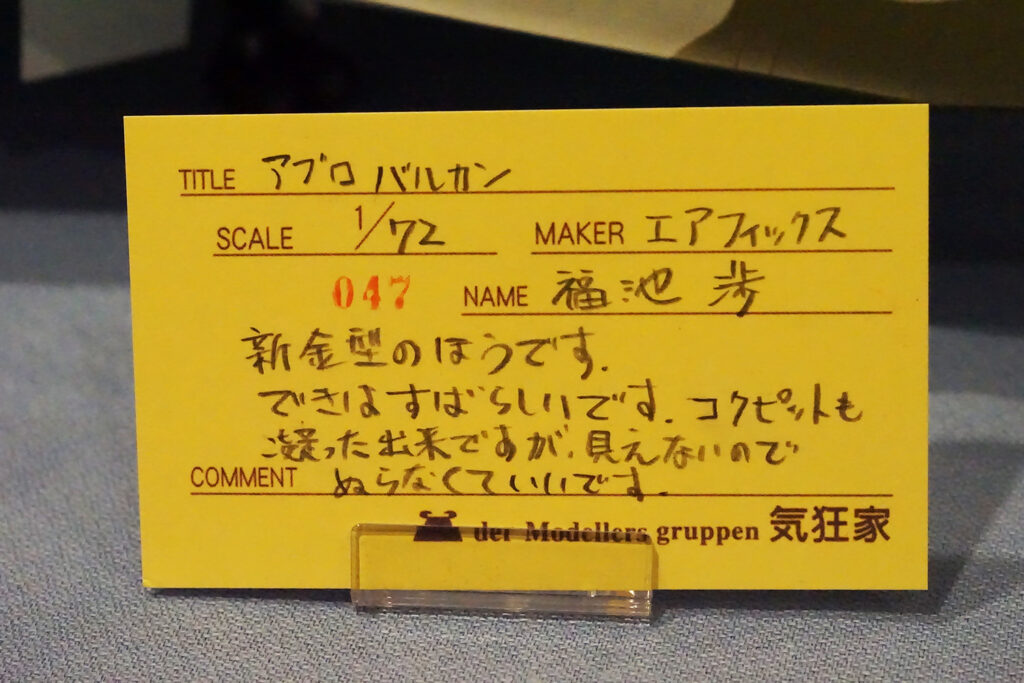 TITLE アブロ バルカン
SCALE 1/72 MAKER エアフィックス
047 NAME 福池 歩
新金型のほうです.
できはすばらしいです. コクピットも
凝った出来ですが、見えないので
COMMENT ぬらなくていいです.
der Modellers gruppen 気狂家